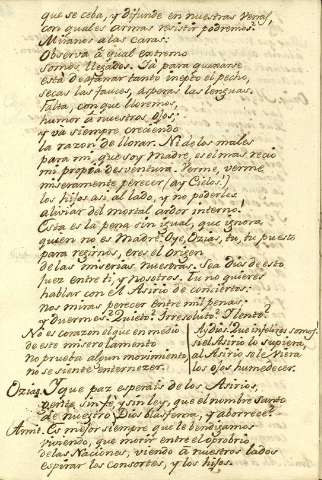 que se ceba, y difunde en nuestras venas,
con quales armas resistir podremos?
Míranos a las caras:
Observa á qual extremo
somos llegados. Ya para quejarse
está de afanar tanto inepto el pecho,
secas las fauces, asperas las lenguas.
Falta, con que lloremos,
humor á nuestros ojos;
y va siempre creciendo
la razon de llorar. Ni de los males
para mi, que soy Madre, es el mas recio
mi propia desventura. Verme, verme
miseramente perecer (ay Cielos!)
los hijos asi al lado, y no poderles
aliviar del mortal ardor interno,
Esta es la pena sin igual, que ignora
quien no es Madre. Oye, Ozias, tu, tu puesto
para regirnos, eres el origen
de las miserias nuestras. Sea Dios de esto
juez entre ti, y nosotros. Tu no quieres
hablar con el Asirio de conciertos:
nos miras perecer entre mil penas;
y duermes? Quieto? Irresoluto? Y lento?
No es corazon el que en medio
de este misero lamento
no prueba algun movimiento,
no se siente enternecer.
Ay Dios! Que infelices somos
si el Asirio lo supiera,
al Asirio se le viera
los ojos humedecer.
Ozias. Y que paz esperais de los Asirios,
gente, sin fe, y sin ley, que el nombre santo
de nuestro Dios blasfema, y aborrece?
Amit. Es mejor siempre que le bendigamos
viviendo, que morir entre el oprobrio
de las Naciones, viendo á nuestros lados
espirar los consortes, y los hijos.